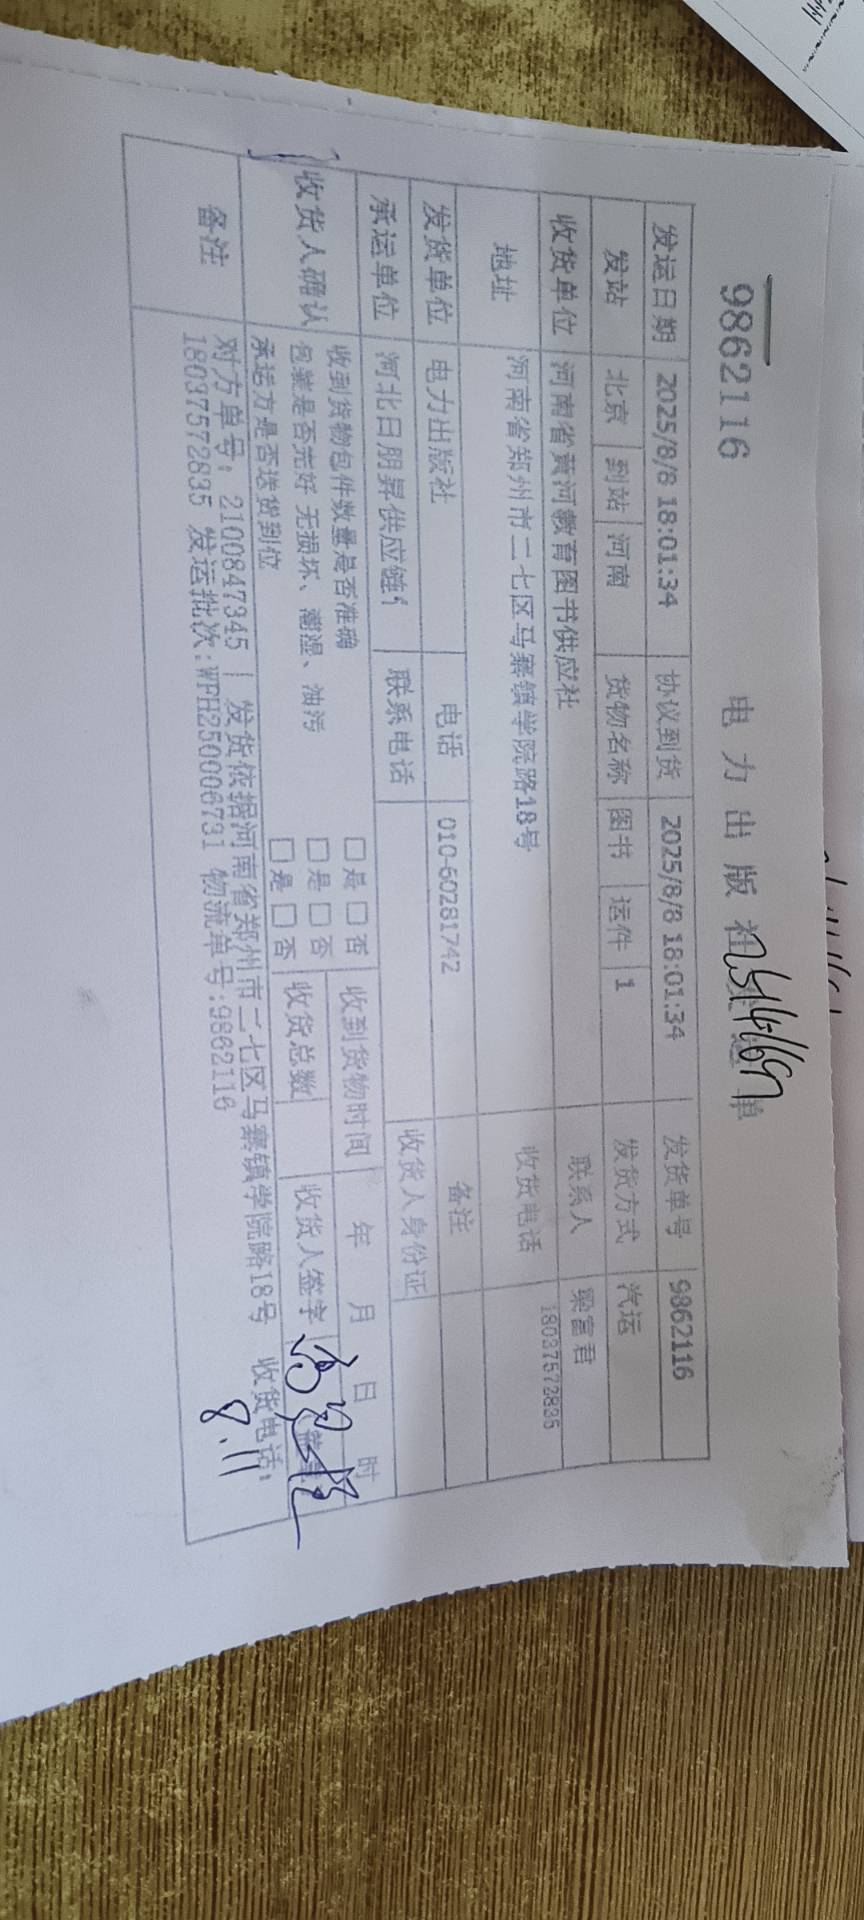 9862116
电力出版社
发运日期 2025/8/8 18:01:34 协议到货 2025/8/8 18:01:34 发货单号 9862116
发站 北京 到站 河南 货物名称 图书 运件 1 发货方式 汽运
收货单位 河南省黄河教育图书供应社 联系人 梁富君
地址 河南省郑州市二七区马寨镇学院路18号 收货电话 18037572835
发货单位 电力出版社 电话 010-60281742 备注
承运单位 河北日朋昇供应链 联系电话 收货人身份证
收货人确认 收到货物包件数量是否准确 □是 □否 收到货物时间 年 月 日 时
包装是否完好 无损坏、潮湿、油污 □是 □否 收货总数 收货人签字
承运方是否送货到位 □是 □否
备注 对方单号：2100847345 | 发货依据河南省郑州市二七区马寨镇学院路18号 收货电话：
18037572835 发运批次:WPH250006731 物流单号:9862116
8.11